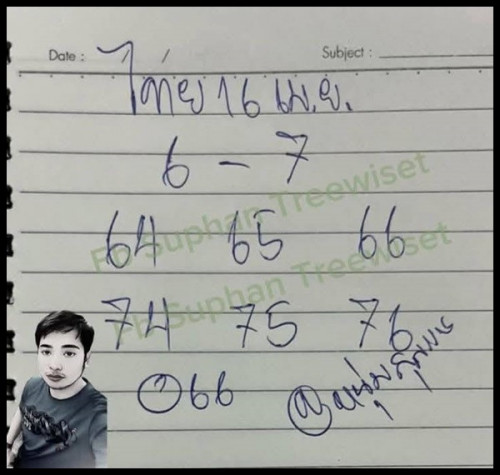 Date :
Subject :
ไทย 16 เม.ย.
6 - 7
64 65 66
FB Suphan Treewiset
74 75 76
FB Suphan Treewiset
066
หนุ่มสุพรรณ